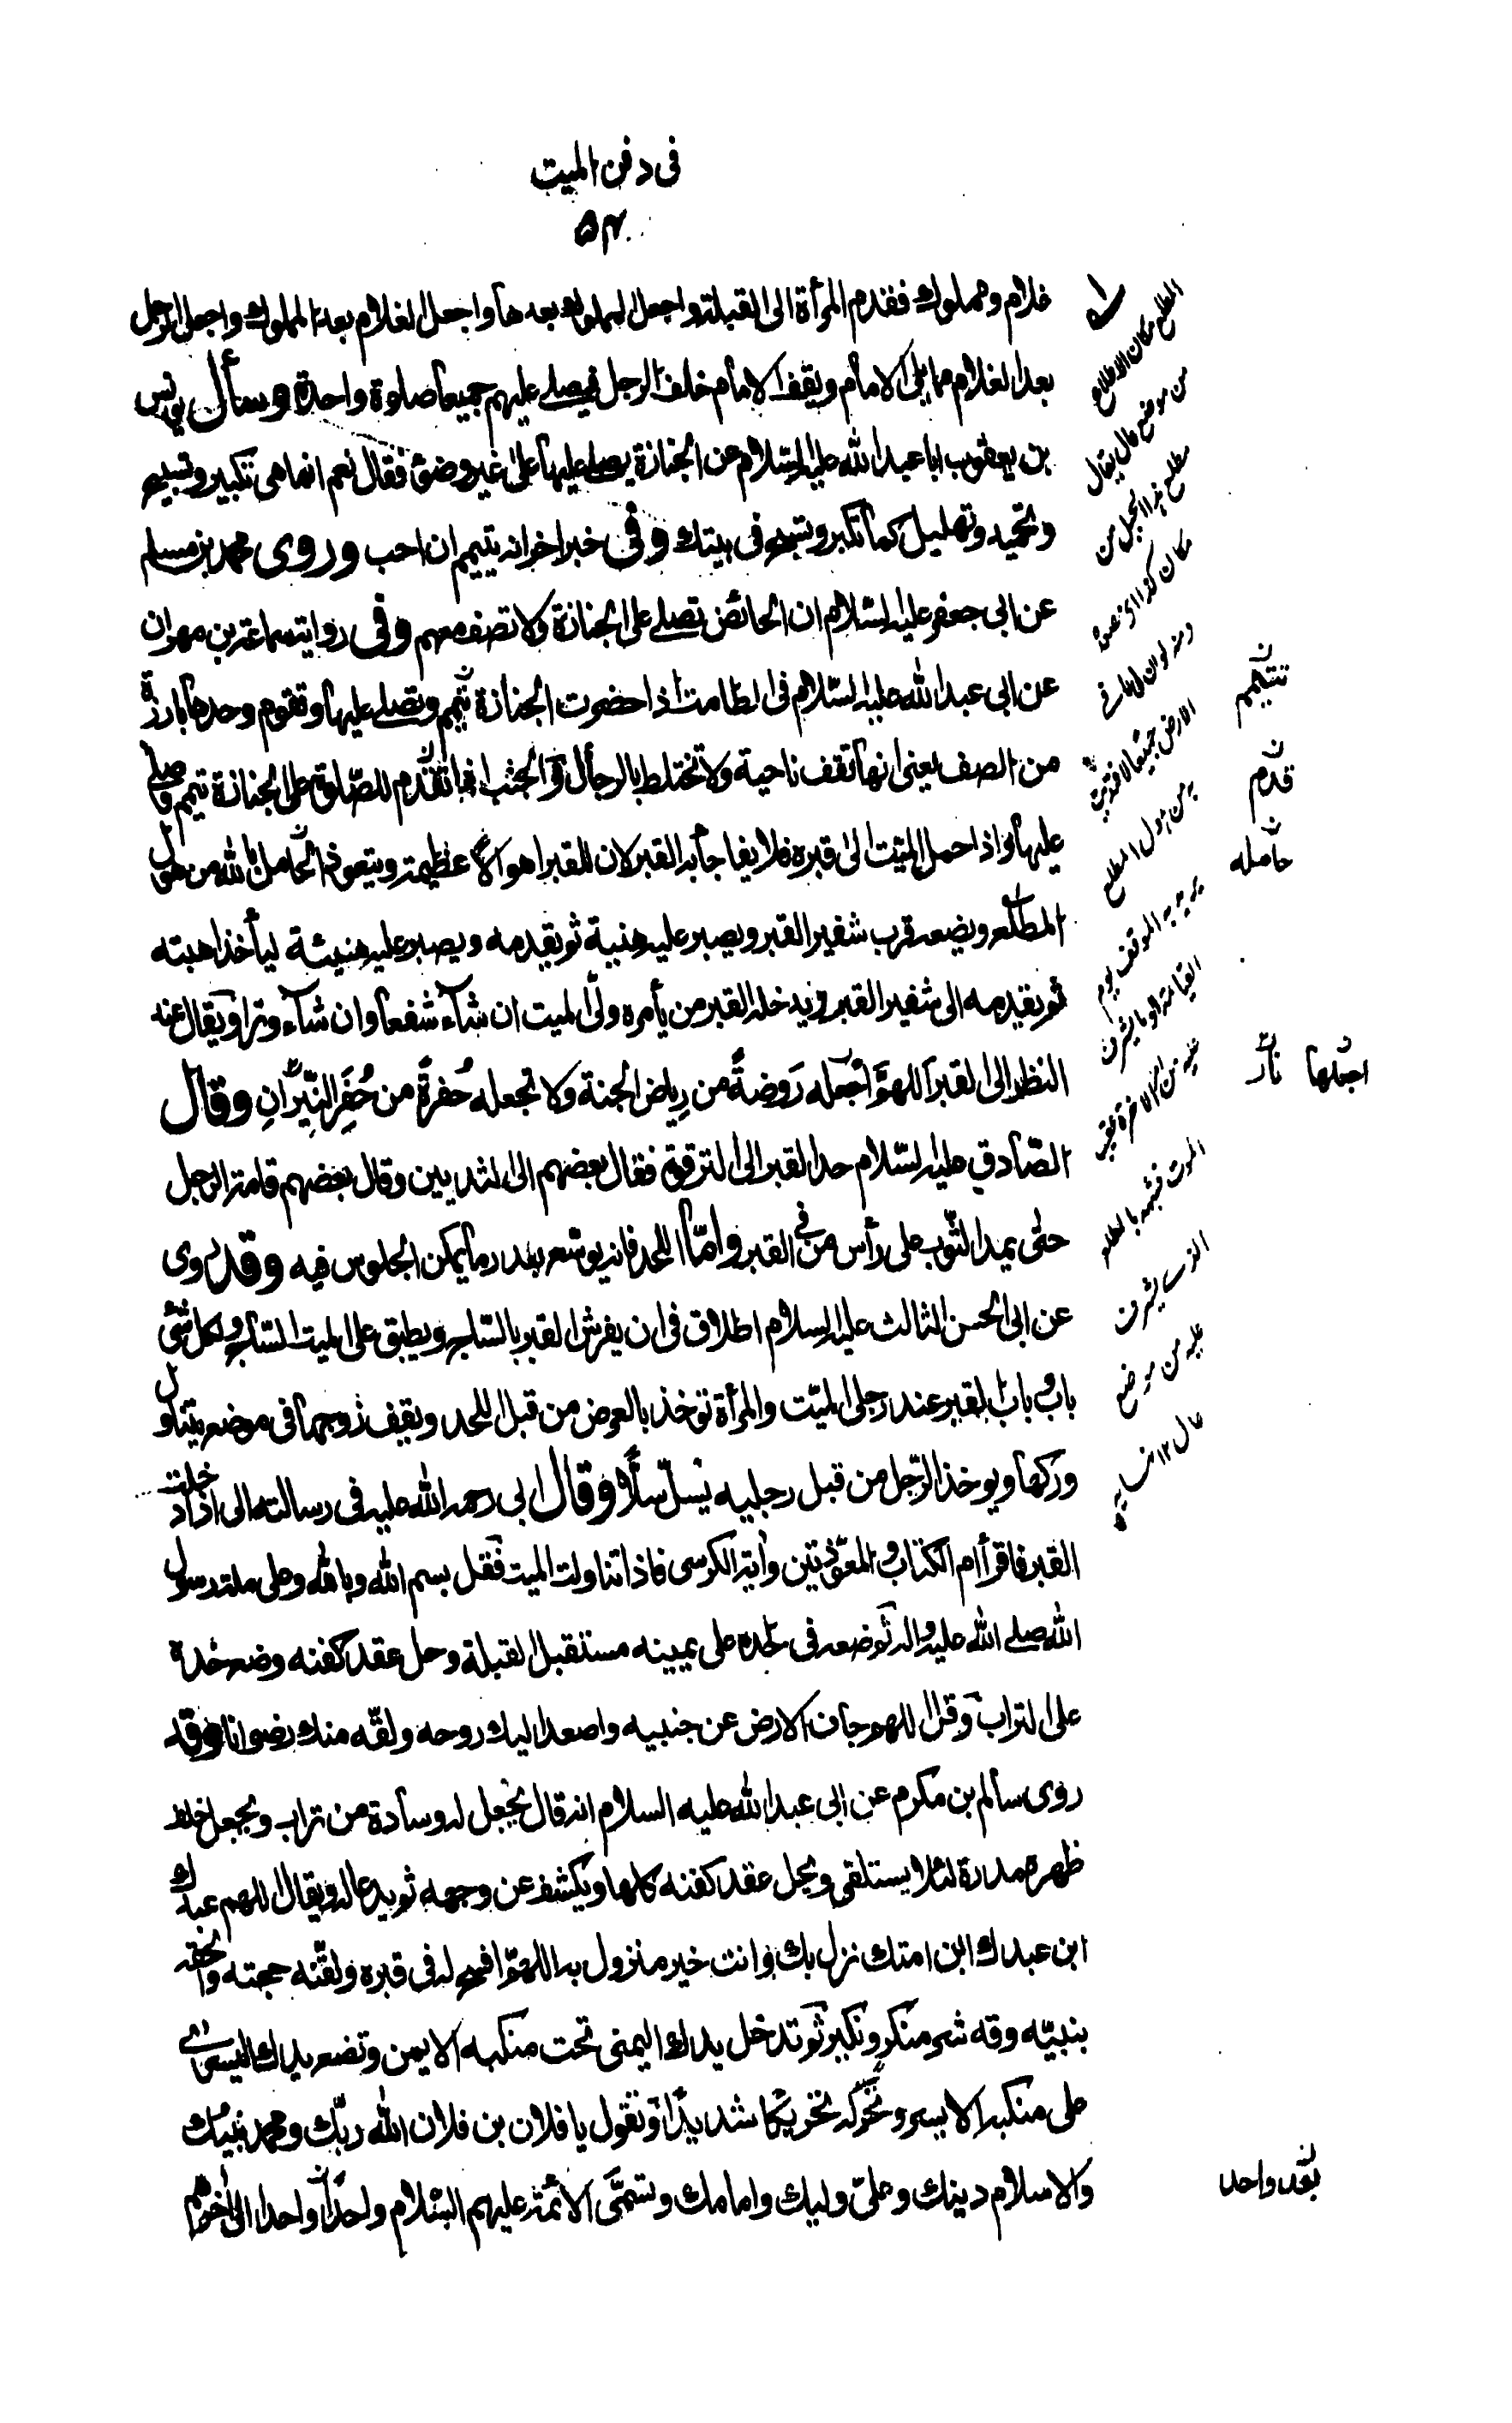 فى دفن الميت
۵۴
غلام ومملوك فقدم المرأة الى القبلة واجعل المملوك بعدها واجعل الغلام بعد المملوك واجعل الرجل
بعد الغلام مما يلى الامام ويقف الامام خلف الرجل فيصلى عليهم جميعا صلوة واحدة وسأل يونس
بن يعقوب ابا عبد الله عليه السّلام عن الجنازة يصلى عليها على غير وضوء فقال نعم انما هى تكبير وتسبيح
وتحميد وتهليل كما تكبر وتسبح فى بيتك وفى خبر اخر انه يتيمم ان احب وروى محمد بن مسلم
عن ابى جعفر عليه السّلام ان الحائض تصلى على الجنازة ولا تصف معهم وفى رواية سماعة بن مهران
عن ابى عبد الله عليه السّلام فى الطامث اذا حضرت الجنازة تيمم وتصلى عليها وتقوم وحدها بارزة
من الصف يعنى انها تقف ناحية ولا تختلط بالرجال والجنب اذا تقدم للصّلوة على الجنازة تيمم وصلى
عليها واذا حمل الميّت الى قبره فلا يفاجأ به القبر لان للقبر اهوالا عظيمة ويتعوذ الحامل بالله من هول
المطلع ويضعه قرب شفير القبر ويصبر عليه هنية ثم يقدمه ويصبر عليه هنيئة ليأخذ اهبته
ثم يقدمه الى شفير القبر ويدخله القبر من يأمره ولىّ الميت ان شاء شفعا وان شاء وترا ويقال عند
النظر الى القبر اللهمّ اجعله رَوضةً من رياض الجنة ولا تجعله حُفرةً من حُفَرِ النِّيرَانِ وقال
الصّادق عليه السّلام حد القبر الى الترقوة فقال بعضهم الى الثديين وقال بعضهم قامة الرجل
حتى يمد الثّوب على رأس من فى القبر وامّا اللحد فانه يوسّع بقدر ما يمكن الجلوس فيه وقد روى
عن ابى الحسن الثالث عليه السلام اطلاق فى ان يفرش القبر بالسّاج ويطبق على الميت السّاج ولكل شئ
باب وباب القبر عند رجلى الميّت والمرأة تؤخذ بالعرض من قبل اللحد ويقف زوجها فى موضع يتناول
وركها ويوخذ الرّجل من قبل رجليه يُسَلّ سلًّا وقال ابى رحمه الله عليه فى رسالته الى اذا دخلت
القبر فاقرأ ام الكتاب والمعوّذتين واية الكرسى فاذا تناولت الميت فقل بسم الله وبالله وعلى ملة رسول
الله صلى الله عليه واله ثم ضعه فى لحده على يمينه مستقبل القبلة وحل عقد كفنه وضع خده
على التراب وقل اللهم جاف الارض عن جنبيه واصعد اليك روحه ولقّه منك رضوانا وقد
روى سالم بن مكرم عن ابى عبد الله عليه السلام انه قال يجعل له وسادة من تراب ويجعل خلف
ظهره مدرة لئلا يستلقى ويحل عقد كفنه كلها ويكشف عن وجهه ثم يدعا له ويقال اللهم عبدك
ابن عبدك ابن امتك نزل بك وانت خير منزول به اللهمّ افسح له فى قبره ولقّنه حجته والحقه
بنبيّه وقه شر منكر ونكير ثم تدخل يدك اليمنى تحت منكبه الايمن وتضع يدك اليسرى
على منكبه الايسر وتحرّكه تحريكا شديدًا وتقول يا فلان بن فلان الله ربّك ومحمد نبيّك
والاسلام دينك وعلىّ وليك وامامك وتسمّى الائمّة عليهم السّلام واحدًا واحدا الى اخرهم
المطلع مكان الاطلاع
من موضع عال يقال
مطلع هذا الجبل من
مكان كذا اى
الارض جميعا لافتديت
به من هول المطلع
يريد به الموقف يوم
القيامة
الموت فشبهه بالمطلع
الذى يشرف
عليه من موضع
عال ۱۲
تتيمم
قدم
حامله
اجعلها نار
بعد واحد